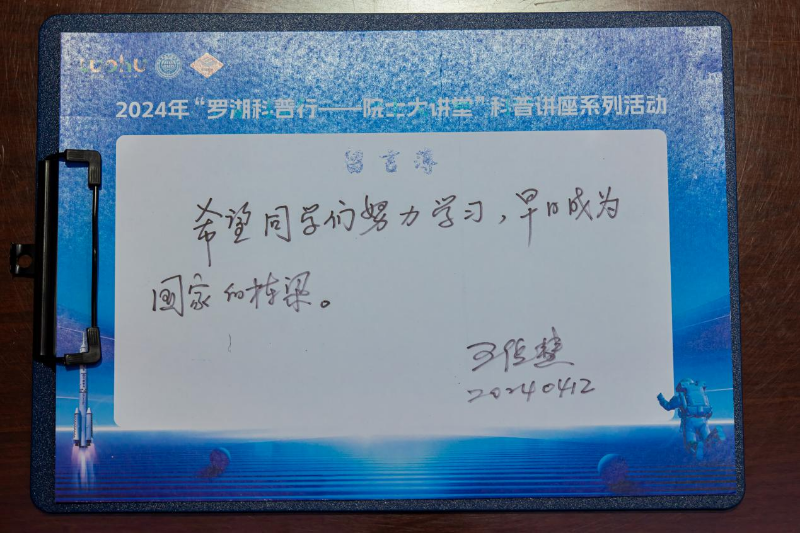 luohu
2024年“罗湖科普行——院士大讲堂”科普讲座系列活动
留言簿
希望同学们努力学习，早日成为
国家的栋梁。
20240412